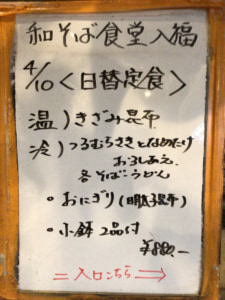 和そば食堂入福
4/10<日替定食>
温)きざみ昆布
冷)つるむらさきとなめたけ
おろしあえ
各そばうどん
。おにぎり(明太昆布)
。小鉢2品付
¥880.-
=入口こちら→